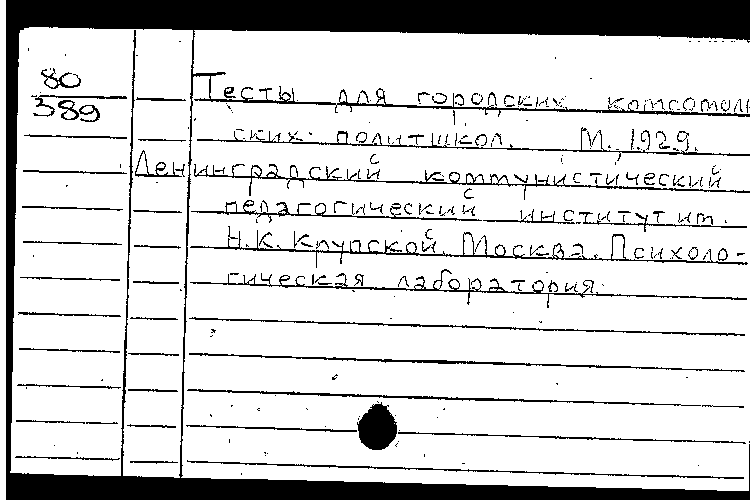 80
389
Тесты для городских комсомоль
ских политшкол. М., 1929.
Ленинградский коммунистический
педагогический институт им.
Н.К. Крупской. Москва. Психоло-
гическая лаборатория.